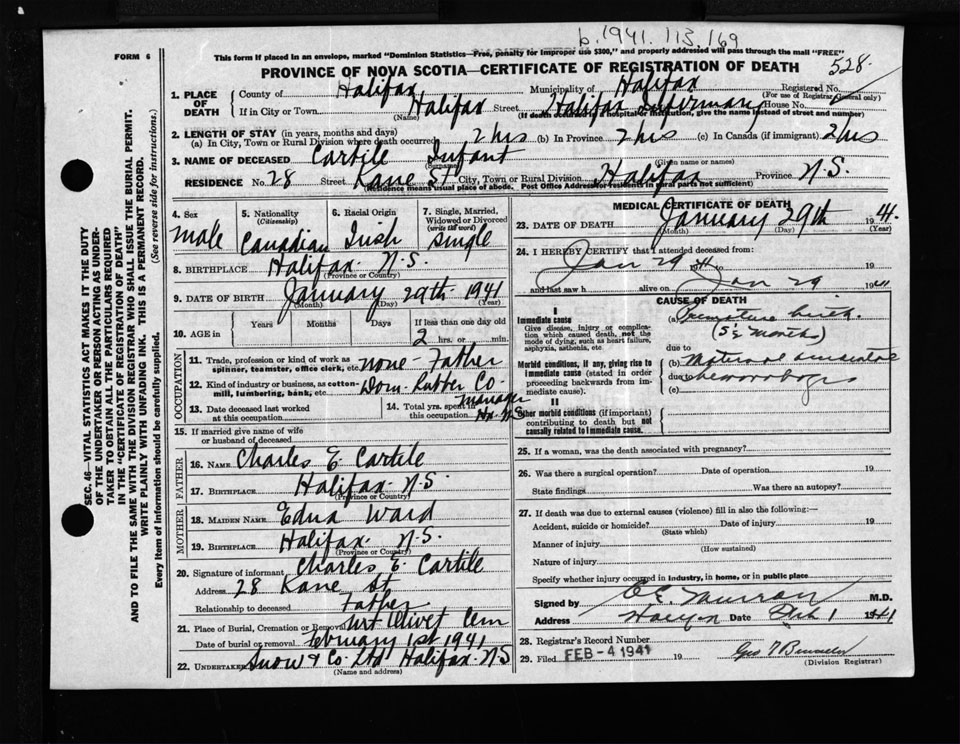 b.1941.113.169
FORM 6
This form if placed in an envelope, marked "Dominion Statistics—Free, penalty for improper use $300," and properly addressed will pass through the mail "FREE"
PROVINCE OF NOVA SCOTIA—CERTIFICATE OF REGISTRATION OF DEATH
528
1. PLACE OF DEATH
County of Halifax Municipality of Halifax Registered No.
(For use of Registrar General only)
If in City or Town Halifax Street Halifax Infirmary House No.
(Name) (If death occurred in a hospital or institution, give the name instead of street and number)
2. LENGTH OF STAY (in years, months and days)
(a) In City, Town or Rural Division where death occurred 2 hrs (b) In Province 2 hrs (c) In Canada (if immigrant) 2 hrs
3. NAME OF DECEASED Cartile Infant
(Surname) (Given name or names)
RESIDENCE No. 28 Street Kane St City, Town or Rural Division Halifax Province N.S.
(Residence means usual place of abode. Post Office Address for residents in rural parts not sufficient)
SEC. 46—VITAL STATISTICS ACT MAKES IT THE DUTY
OF THE UNDERTAKER OR PERSON ACTING AS UNDER-
TAKER TO OBTAIN ALL THE PARTICULARS REQUIRED
IN THE "CERTIFICATE OF REGISTRATION OF DEATH"
AND TO FILE THE SAME WITH THE DIVISION REGISTRAR WHO SHALL ISSUE THE BURIAL PERMIT.
WRITE PLAINLY WITH UNFADING INK. THIS IS A PERMANENT RECORD.
Every item of information should be carefully supplied. (See reverse side for instructions.)
4. Sex
male
5. Nationality
(Citizenship)
Canadian
6. Racial Origin
Irish
7. Single, Married,
Widowed or Divorced
(write the word)
single
8. BIRTHPLACE Halifax N.S.
(Province or Country)
9. DATE OF BIRTH January 29th 1941
(Month) (Day) (Year)
10. AGE in Years Months Days If less than one day old
2 hrs. or min.
OCCUPATION
11. Trade, profession or kind of work as
spinner, teamster, office clerk, etc. none - Father
12. Kind of industry or business, as cotton-
mill, lumbering, bank, etc. Dom. Rubber Co.
manager
13. Date deceased last worked
at this occupation
14. Total yrs. spent in
this occupation Hx. N.S
15. If married give name of wife
or husband of deceased
FATHER
16. NAME Charles E Cartile
17. BIRTHPLACE Halifax N.S.
(Province or Country)
MOTHER
18. MAIDEN NAME Edna Ward
19. BIRTHPLACE Halifax N.S.
(Province or Country)
20. Signature of informant Charles E. Cartile
Address 28 Kane St
Relationship to deceased Father
21. Place of Burial, Cremation or Removal Mt Olivet Cem
Date of burial or removal February 1st 1941
22. UNDERTAKER Snow & Co Ltd Halifax N.S
(Name and address)
MEDICAL CERTIFICATE OF DEATH
23. DATE OF DEATH January 29th 1941.
(Month) (Day) (Year)
24. I HEREBY CERTIFY that I attended deceased from:
Jan 29 41 to 19
and last saw h alive on Jan 29 1941
CAUSE OF DEATH
I
Immediate cause
Give disease, injury or complica-
tion which caused death, not the
mode of dying, such as heart failure,
asphyxia, asthenia, etc.
(a) Premature birth.
(5½ months)
due to
Morbid conditions, if any, giving rise to
immediate cause (stated in order
proceeding backwards from im-
mediate cause).
(b) Maternal
due to hemorrhages
(c)
II
Other morbid conditions (if important)
contributing to death but not
causally related to immediate cause.
25. If a woman, was the death associated with pregnancy?
26. Was there a surgical operation? Date of operation 19
State findings Was there an autopsy?
27. If death was due to external causes (violence) fill in also the following:—
Accident, suicide or homicide? Date of injury 19
(State which)
Manner of injury
(How sustained)
Nature of injury
Specify whether injury occurred in industry, in home, or in public place
Signed by M.D.
Address Halifax Date Feb 1 1941
28. Registrar's Record Number
29. Filed FEB -4 1941 19
(Division Registrar)